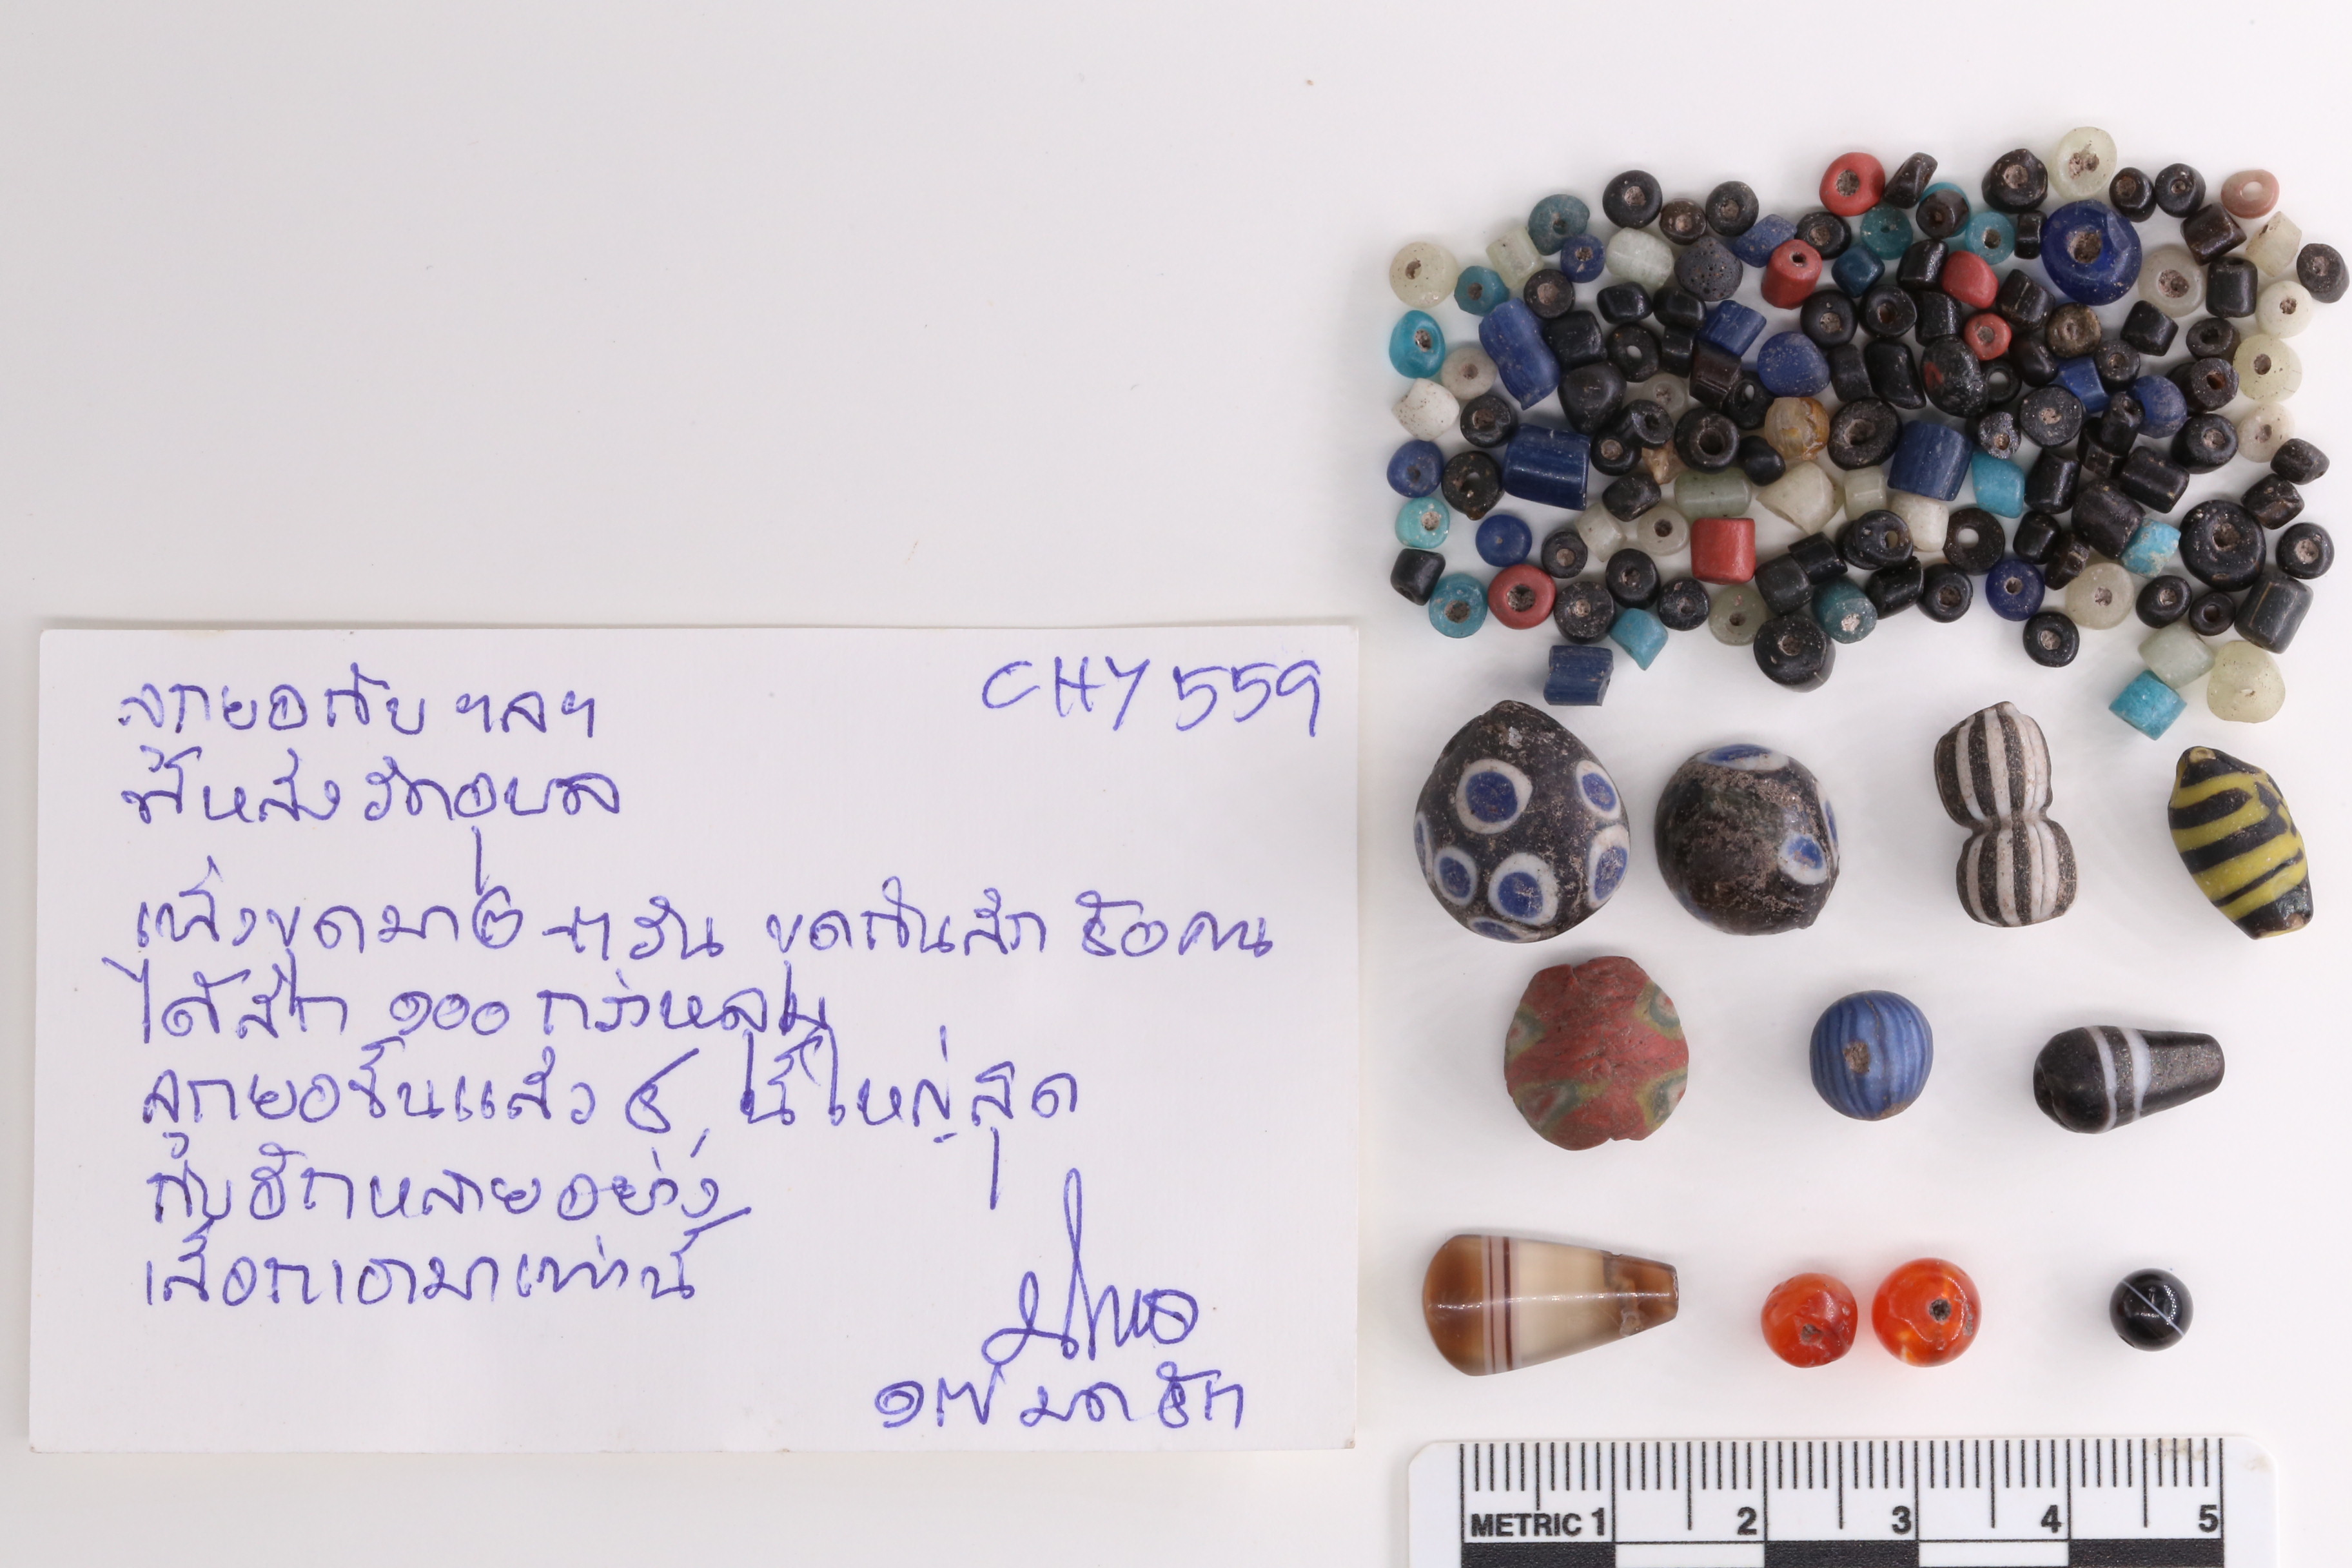 CHY 559
ลูกยอกับ ฯลฯ
ที่หลัง วัดอุบล
เพิ่งขุดมา ๒-๓ วัน ขุดกันสัก ร้อยคน
ได้สัก ๑๐๐ กว่าหลุม
ลูกยอขึ้นแล้ว ๕ นี้ใหญ่สุด
กับอีกหลายอย่าง
เลือกเอามาเท่านี้
๑๗ มค
METRIC 1 2 3 4 5